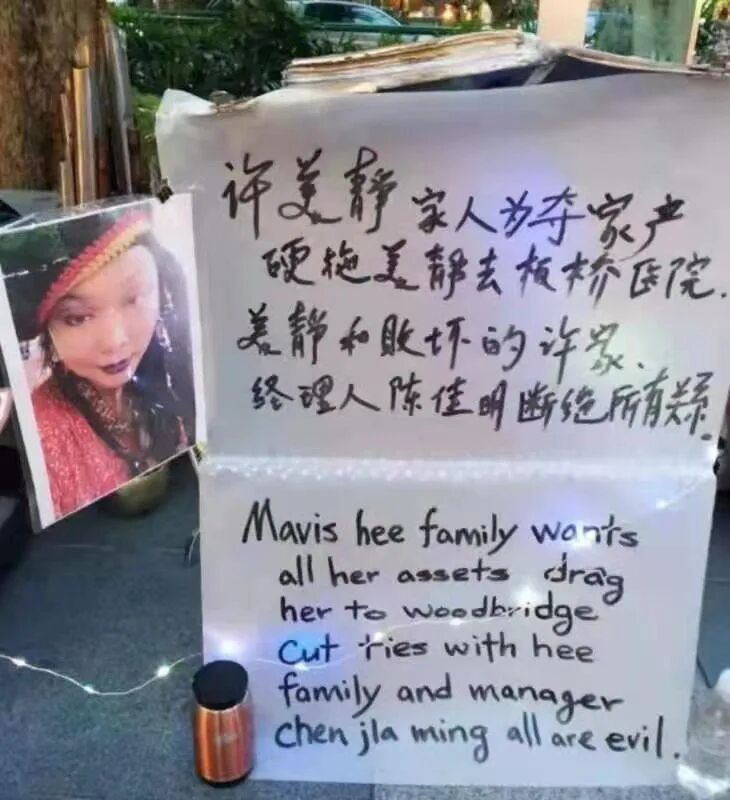 许美静家人为夺家产
硬拖美静去板桥医院.
美静和败坏的许家、
经理人陈佳明断绝所有关系.
Mavis hee family wants
all her assets drag
her to woodbridge
cut ties with hee
family and manager
chen jia ming all are evil.